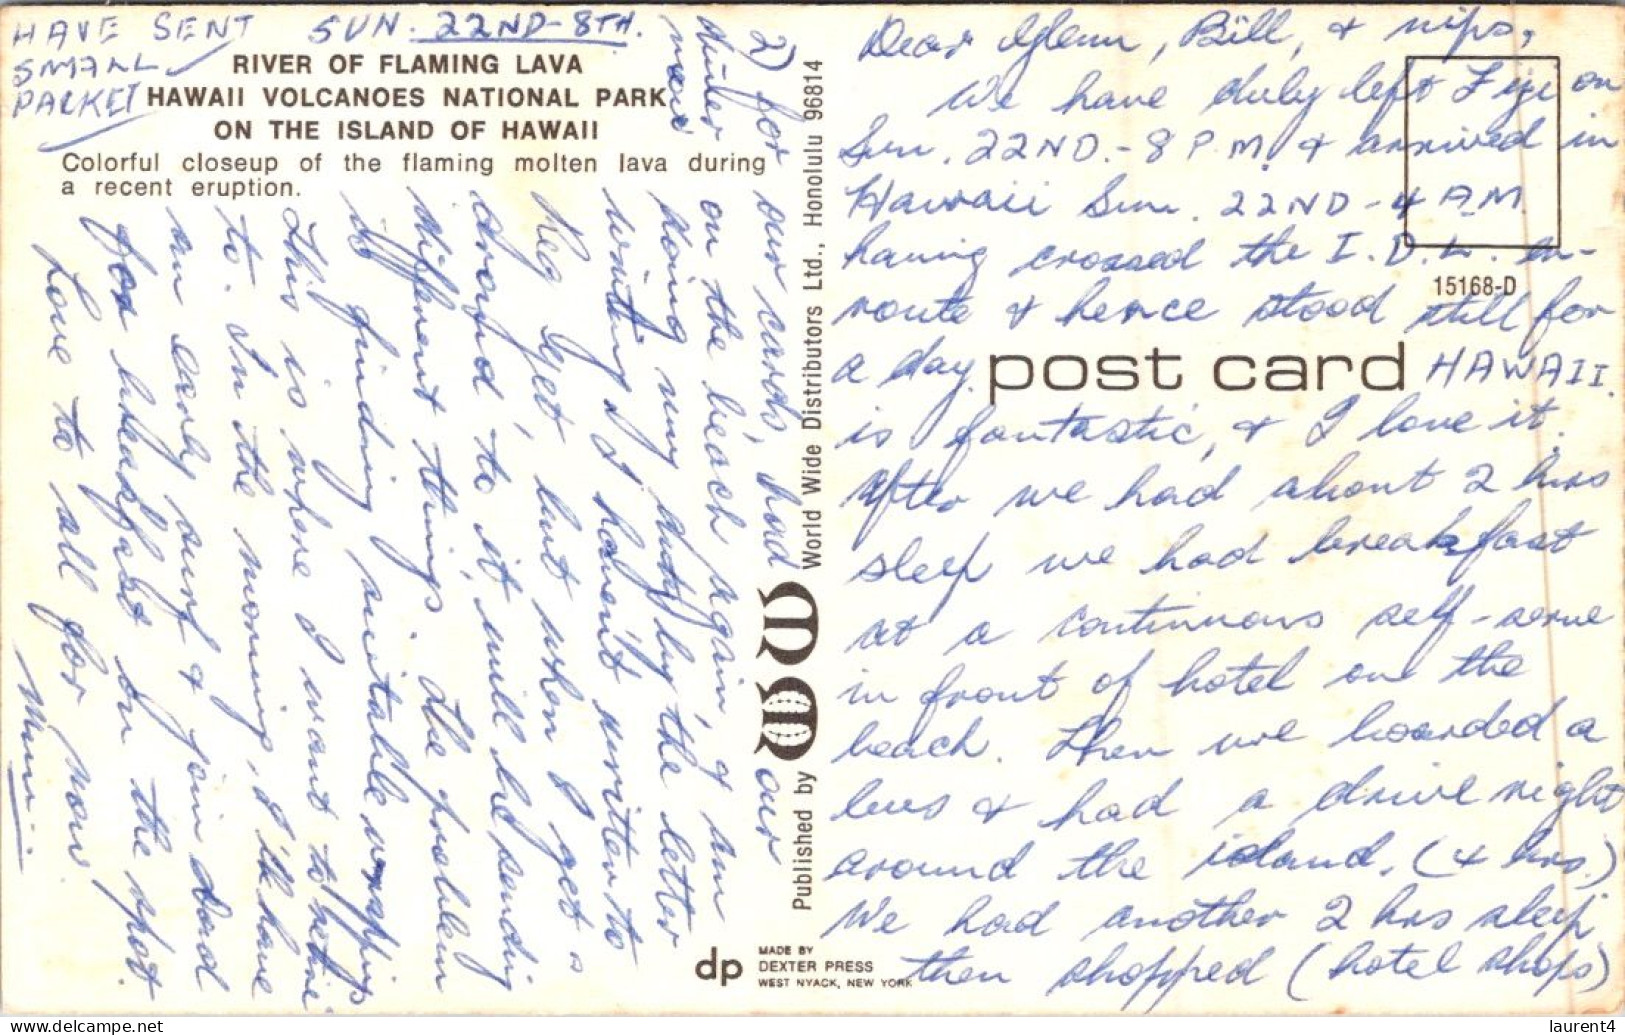 HAVE SENT SUN. 22ND-8TH.
SMALL
PACKET
RIVER OF FLAMING LAVA
HAWAII VOLCANOES NATIONAL PARK
ON THE ISLAND OF HAWAII
Colorful closeup of the flaming molten lava during
a recent eruption.
Dear Glenn, Bill, & nips,
We have duly left Fiji on
Sun. 22ND.-8 P.M. & arrived in
Hawaii Sun. 22ND-4 A.M
having crossed the I.D.L. en-
route & hence stood still for
a day. HAWAII
is fantastic, & I love it.
After we had about 2 hrs
sleep we had breakfast
at a continuous self-serve
in front of hotel on the
beach. Then we boarded a
bus & had a drive right
around the island. (4 hrs.)
We had another 2 hrs sleep
then shopped (hotel shops)
2) for our cards, had our
dinner on the beach again, & am
now doing my duty by the letter
writing. I haven't written to
Reg yet, but when I get
around to it, will be sending
different things. The problem
is finding suitable wrapping
This is where I want to retire
to. In the morning, I'll have
an early surf & join dad
for breakfast on the spot.
Love to all for now
Mum
15168-D
post card
Published by World Wide Distributors Ltd., Honolulu 96814
dp
MADE BY
DEXTER PRESS
WEST NYACK, NEW YORK
laurent4